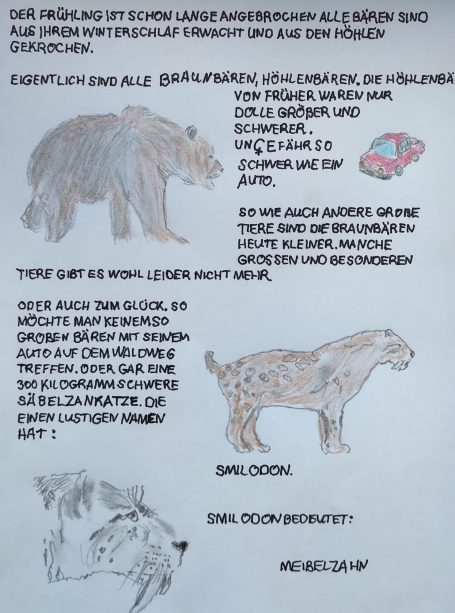 DER FRÜHLING IST SCHON LANGE ANGEBROCHEN ALLE BÄREN SIND
AUS IHREM WINTERSCHLAF ERWACHT UND AUS DEN HÖHLEN
GEKROCHEN.
EIGENTLICH SIND ALLE BRAUNBÄREN, HÖHLENBÄREN. DIE HÖHLENBÄ
VON FRÜHER WAREN NUR
DOLLE GRÖßER UND
SCHWERER.
UNGEFÄHR SO
SCHWER WIE EIN
AUTO.
SO WIE AUCH ANDERE GROßE
TIERE SIND DIE BRAUNBÄREN
HEUTE KLEINER. MANCHE
GROSSEN UND BESONDEREN
TIERE GIBT ES WOHL LEIDER NICHT MEHR
ODER AUCH ZUM GLÜCK. SO
MÖCHTE MAN KEINEM SO
GROßEN BÄREN MIT SEINEM
AUTO AUF DEM WALDWEG
TREFFEN. ODER GAR EINE
300 KILOGRAMM SCHWERE
SÄBELZANKATZE. DIE
EINEN LUSTIGEN NAMEN
HAT:
SMILODON.
SMILODON BEDEUTET:
MEIßELZAHN